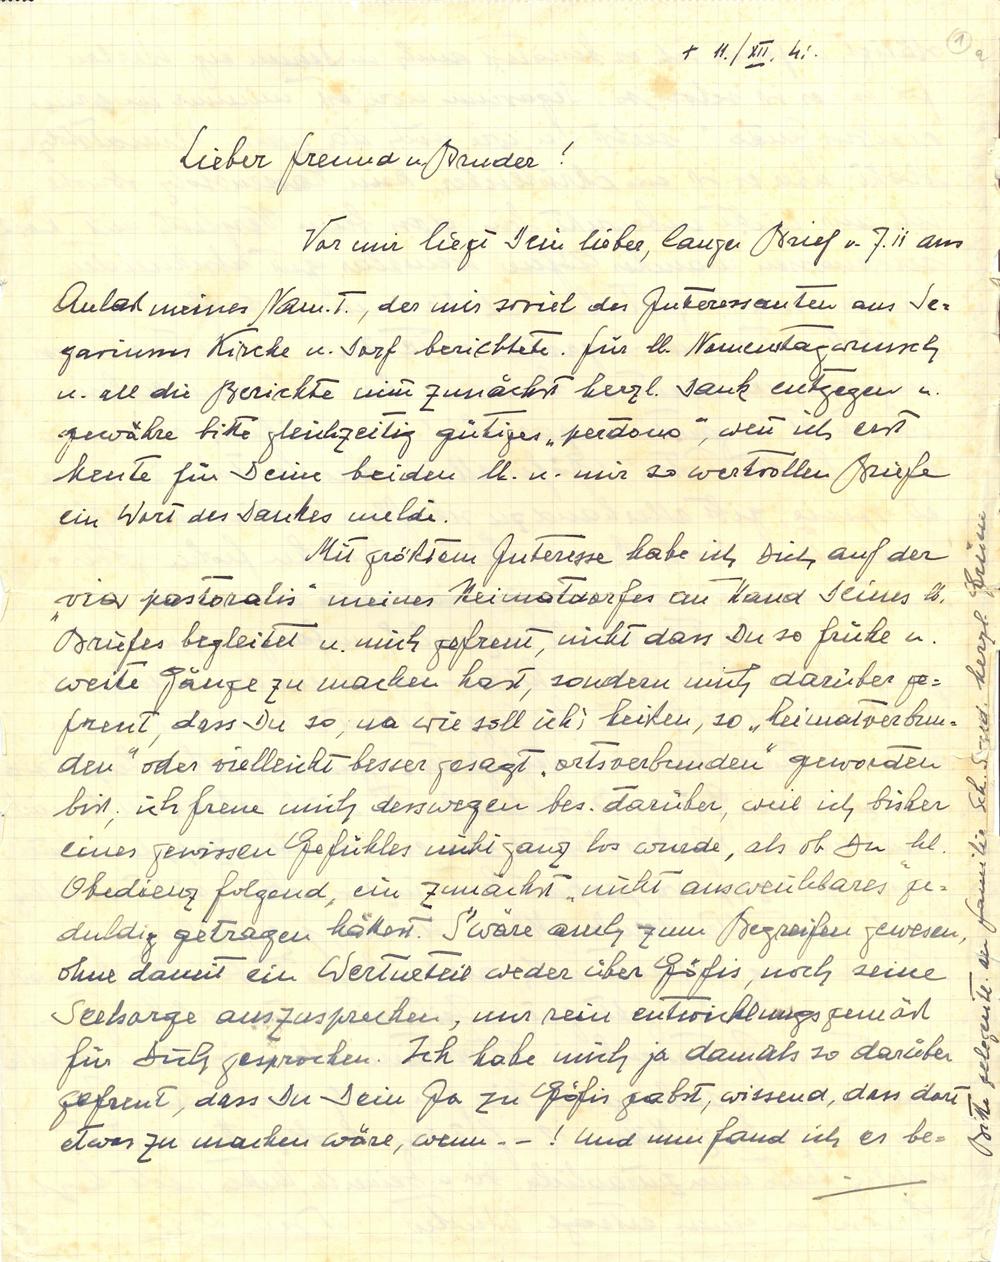 1
a
+ 11./XII. 41.
Lieber Freund u. Bruder !
Vor mir liegt Dein lieber, langer Brief v. 7.11 aus
Anlaß meines Nam.T., der mir soviel des Interessanten aus Se=
gavinums Kirche u. Dorf berichtete. Für lb. Namenstagwunsch
u. all die Berichte nim̄ zunächst herzl. Dank entgegen u.
gewähre bitte gleichzeitig gütiges „perdono", wen̄ ich erst
heute für Deine beiden lb. u. mir so wertvollen Briefe
ein Wort des Dankes melde.
Mit größtem Interesse habe ich Dich auf der
„via pastoralis" meines Heimatdorfes an Hand Deines lb.
Briefes begleitet u. mich gefreut, nicht dass Du so frühe u.
weite Gänge zu machen hast, sondern mich darüber ge=
freut, dass Du so, na wie soll ich's heißen, so „heimatverbun-
den" oder vielleicht besser gesagt „ortsverbunden" geworden
bist; ich freue mich desswegen bes. darüber, weil ich bisher
eines gewissen Gefühles nicht ganz los wurde, als ob Du hl.
Obedienz folgend, ein zunächst „nicht ausweichbares" ge=
duldig getragen hättest. S'wäre auch zum Begreifen gewesen,
ohne damit ein Werturteil weder über Göfis, noch seine
Seelsorge auszusprechen, nur rein entwicklungsgemäß
für Dich gesprochen. Ich habe mich ja damals so darüber
gefreut, dass Du Dein Ja zu Göfis gabst, wissend, dass dort
etwas zu machen wäre, wenn - - ! Und nun fand ich es be=
Bitte gelegentl. der Familie Sch. Sönd. herzl. Grüsse